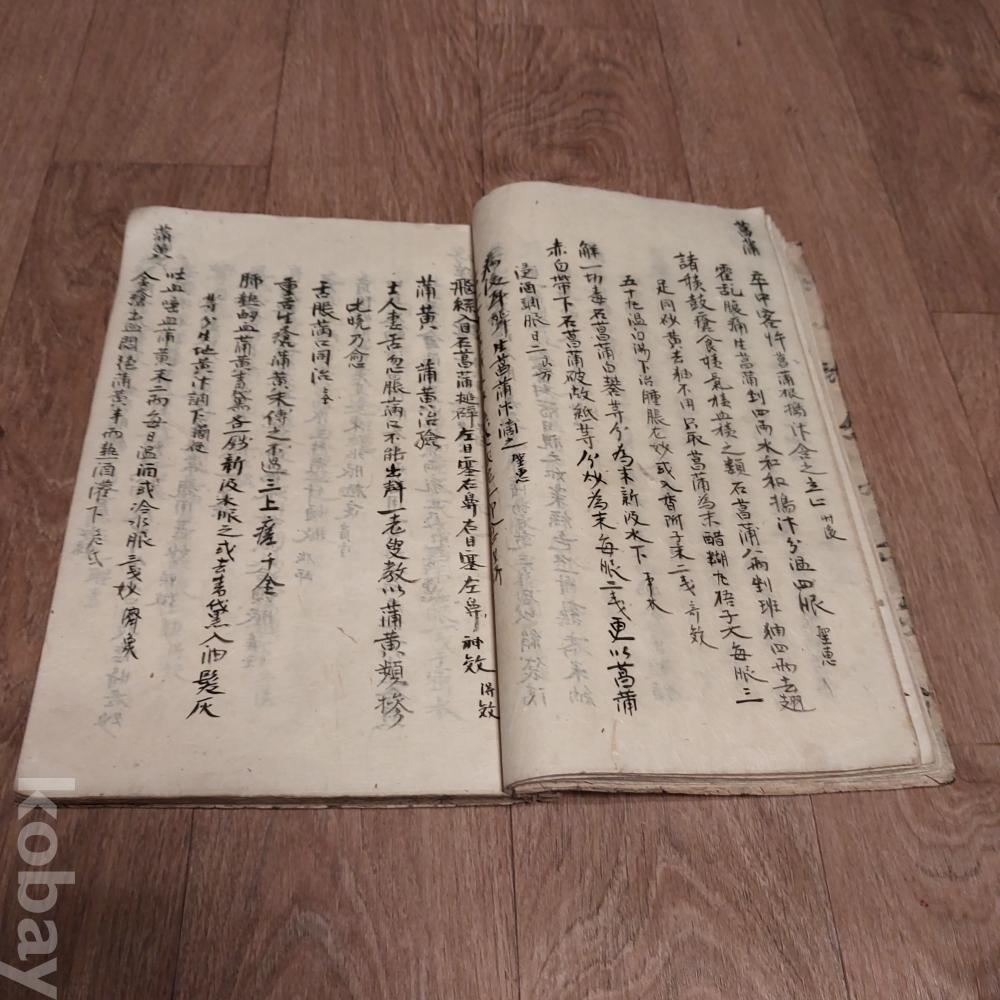 菖蒲
卒中客忤菖蒲根搗汁含之立止 肘後
霍乱腹痛生菖蒲剉四兩水和搗汁分溫四服 聖惠
諸積鼓脹食積氣積血積之類石菖蒲八兩剉班猫四兩去翅
足同炒黃去猫不用只取菖蒲為末醋糊丸梧子大每服三
五十丸溫白湯下治腫脹尤妙或入香附子末二戔 奇效
解一切毒石菖蒲白礬等分為末新汲水下 事木
赤白帶下石菖蒲破故紙等分炒為末每服二戔更以菖蒲
浸酒調服日二
病後耳聾生菖蒲汁滴之 聖惠
飛絲入目石菖蒲搥碎左目塞右鼻右目塞左鼻 神效 得效
蒲黃
蒲黃 蒲黃治驗
士人妻舌忽脹滿口不能出聲一老叟教以蒲黃頻摻
比曉乃愈
舌脹滿口同治
重舌生瘡蒲黃末傅之不過三上瘥 千金
肺熱衄血蒲黃靑黛各戔新汲水服之或去靑黛入油髮灰
等分生地黃汁調下
吐血唾血蒲黃末二兩每日溫酒或冷水服三戔妙
金瘡出血悶絕蒲黃半兩熱酒灌下
kobay